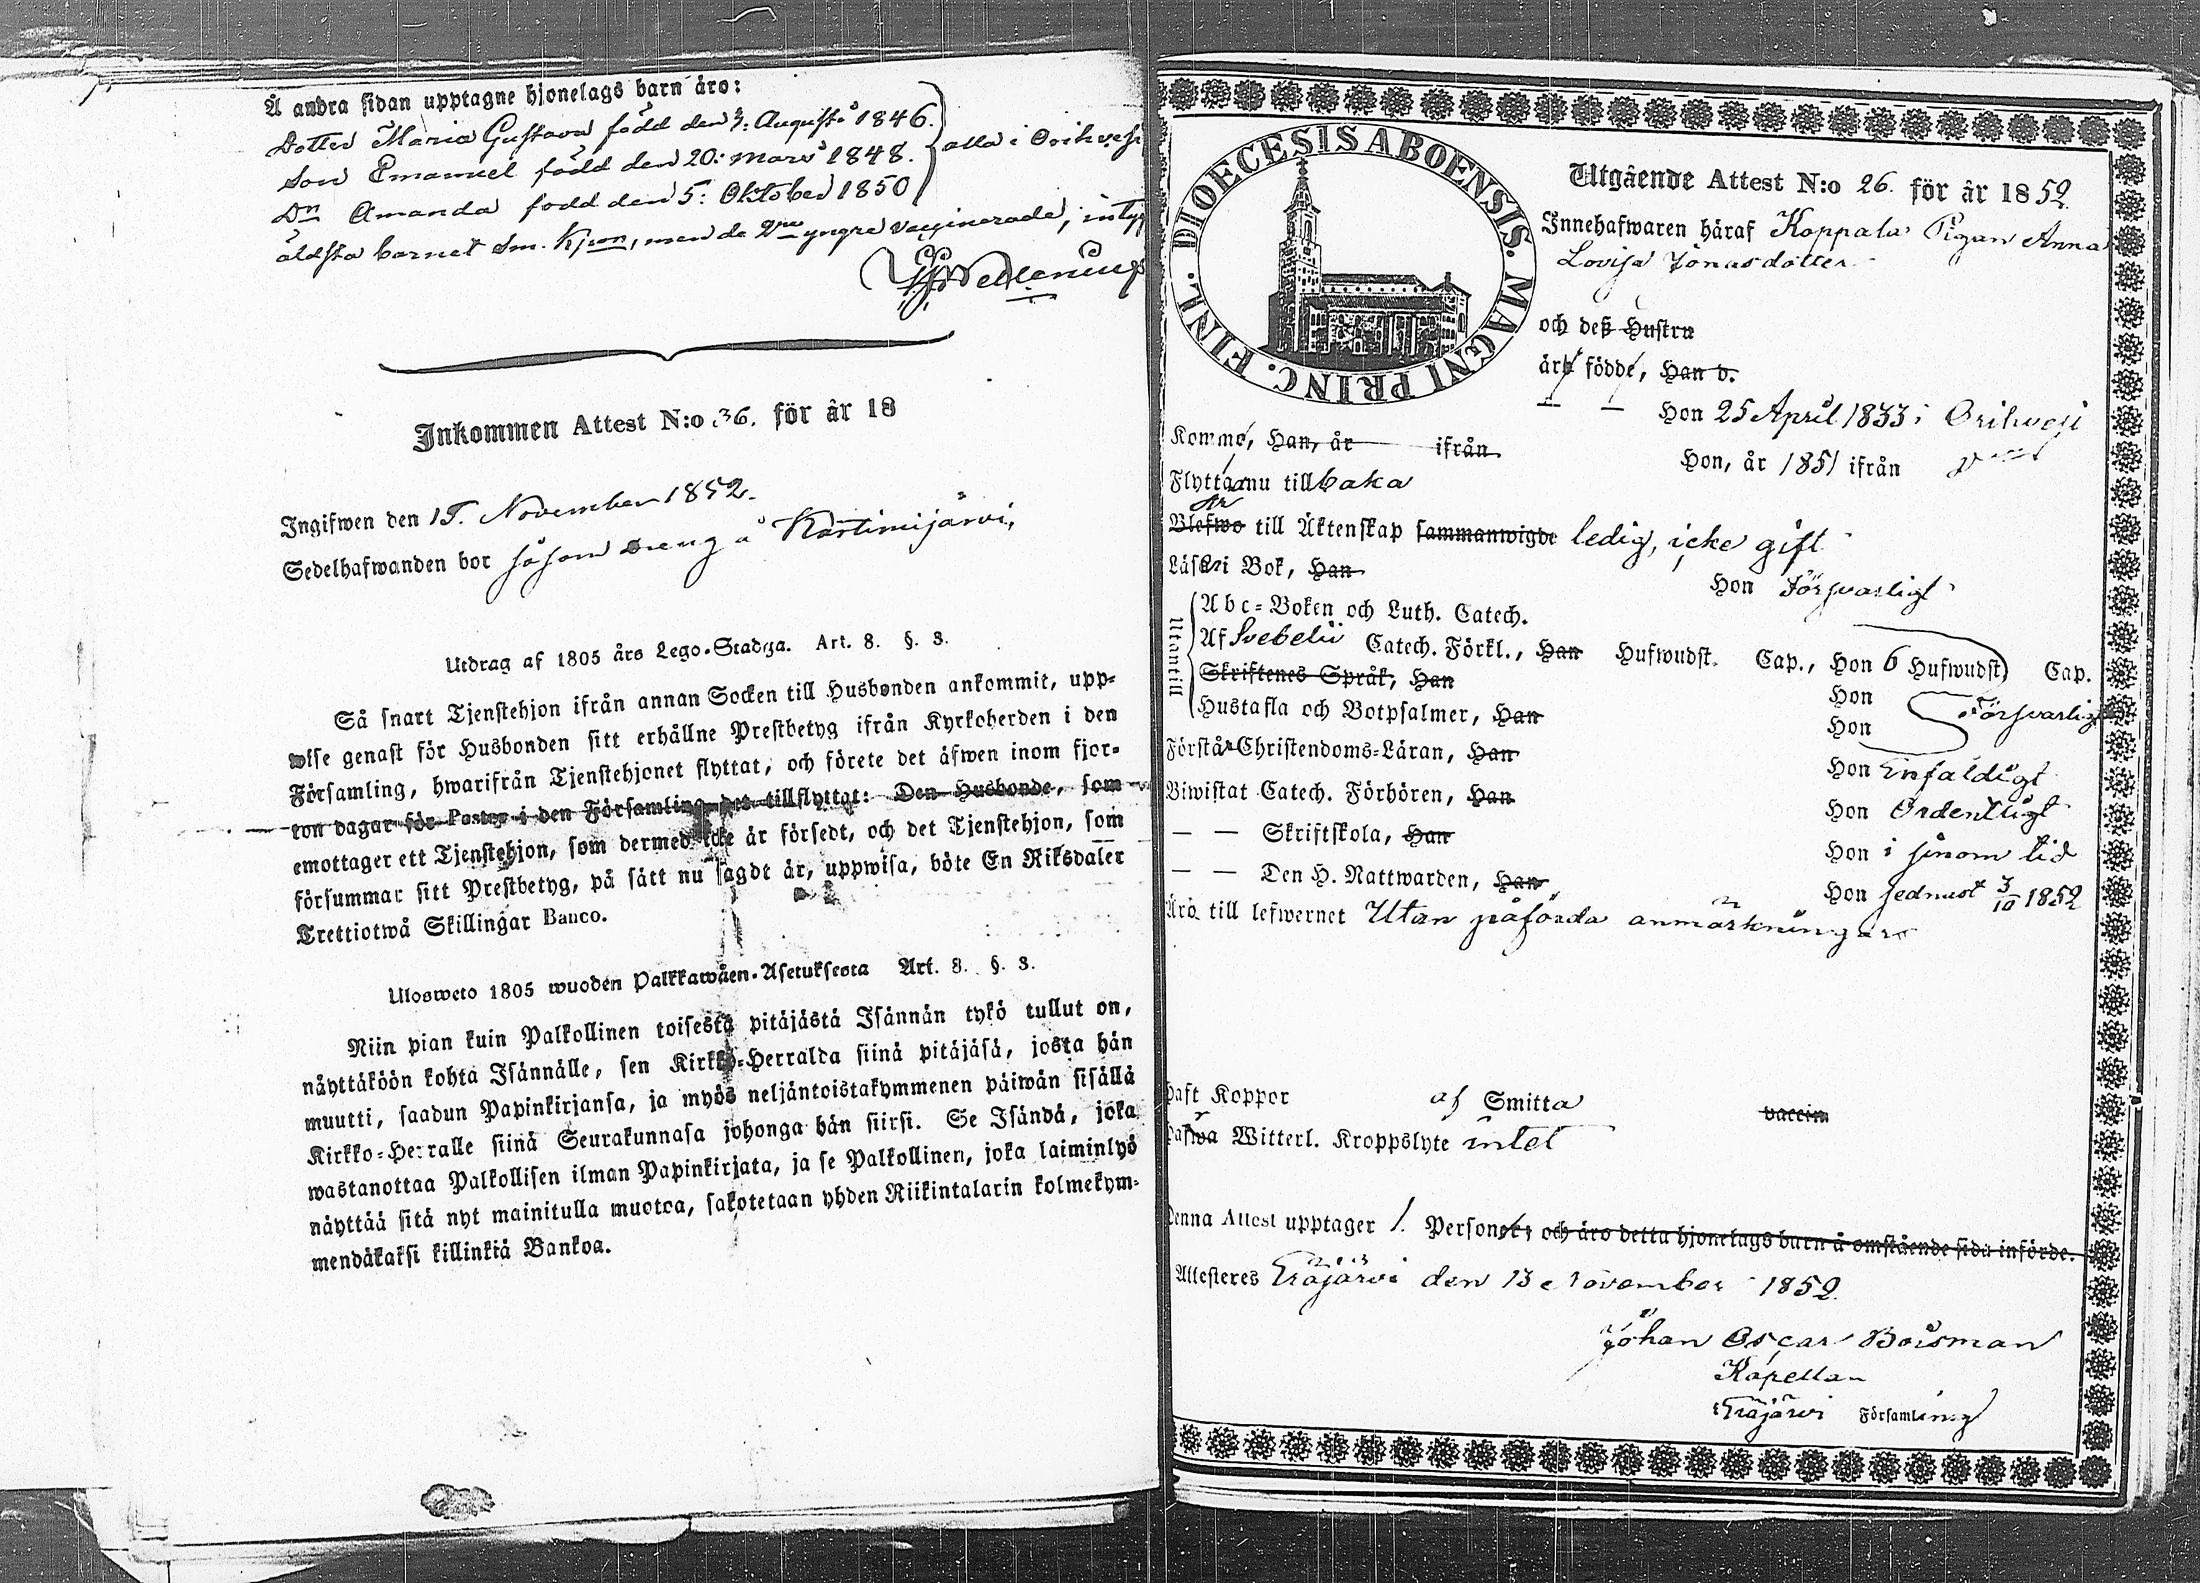 Å andra sidan upptagne hjonelags barn äro:
Dotter Maria Gustava född den 3: Augusti 1846.
Son Emanuel född den 20: Mars 1848. alla i Orihvesi
Dn Amanda född den 5: Oktober 1850
äldsta barnet Sm. Kpor, men de 2ne yngre vaccinerade, intyg
Inkommen Attest N:o 36. för år 18
Ingifwen den 15. November 1852.
Sedelhafwanden bor såsom dreng å Kartimijärvi,
Utdrag af 1805 års Lego-Stadga. Art. 8. §. 3.
Så snart Tjenstehjon ifrån annan Socken till Husbonden ankommit, upp-
wise genast för Husbonden sitt erhållne Prestbetyg ifrån Kyrkoherden i den
Församling, hwarifrån Tjenstehjonet flyttat, och förete det äfwen inom fjor-
ton dagar för Pastor i den Församling det tillflyttat: Den Husbonde, som
emottager ett Tjenstehjon, som dermed icke är försedt, och det Tjenstehjon, som
försummar sitt Prestbetyg, på sätt nu sagdt är, uppwisa, böte En Riksdaler
Trettiotwå Skillingar Banco.
Ulosweto 1805 wuoden Palkkawäen-Asetuksesta Art. 8. §. 3.
Niin pian kuin Palkollinen toisesta pitäjästä Isännän tykö tullut on,
näyttäköön kohta Isännälle, sen Kirkko-Herralda siinä pitäjäsä, josta hän
muutti, saadun Papinkirjansa, ja myös neljäntoistakymmenen päiwän sisällä
Kirkko-Herralle siinä Seurakunnasa johonga hän siirsi. Se Isändä, joka
wastanottaa Palkollisen ilman Papinkirjata, ja se Palkollinen, joka laiminlyö
näyttää sitä nyt mainitulla muotoa, sakotetaan yhden Riikintalarin kolmekym-
mendäkaksi killinkiä Bankoa.
DIOECESIS ABOENSIS. MAGNI PRINC. FINL.
Utgående Attest N:o 26. för år 1852
Innehafwaren häraf Koppala Pigan Anna
Lovisa Jonasdotter
och deß Hustru
äro födde, Han d.
— — Hon 25 April 1833 i Orihvesi
Komme, Han, år ifrån Hon, år 1851 ifrån
Flytta nu tillbaka
är
Blefwo till Äktenskap sammanwigde ledig, icke gift
Läsa i Bok, Han Hon Försvarligt
Utantill
Abc-Boken och Luth. Catech.
Af Svebelii Catech. Förkl., Han Hufwudst. Cap., Hon 6 Hufwudst. Cap.
Skriftenes Språk, Han Hon Försvarligt
Hustafla och Botpsalmer, Han Hon
Förstår Christendoms-Läran, Han Hon Enfaldigt
Biwistat Catech. Förhören, Han Hon Ordentligt
— — Skriftskola, Han Hon i sinom tid
— — Den H. Nattwarden, Han Hon sednast 3/10 1852
Äro till lefwernet Utan påförda anmärkningar
Haft Koppor af Smitta vaccin
Hafwa Witterl. Kroppslyte intet
Denna Attest upptager 1. Personer, och äro detta hjonelags barn å omstående sida införde.
Attesteres Eräjärvi den 13 November 1852
Johan Oscar Boisman
Kapellan
Eräjärvi Församling